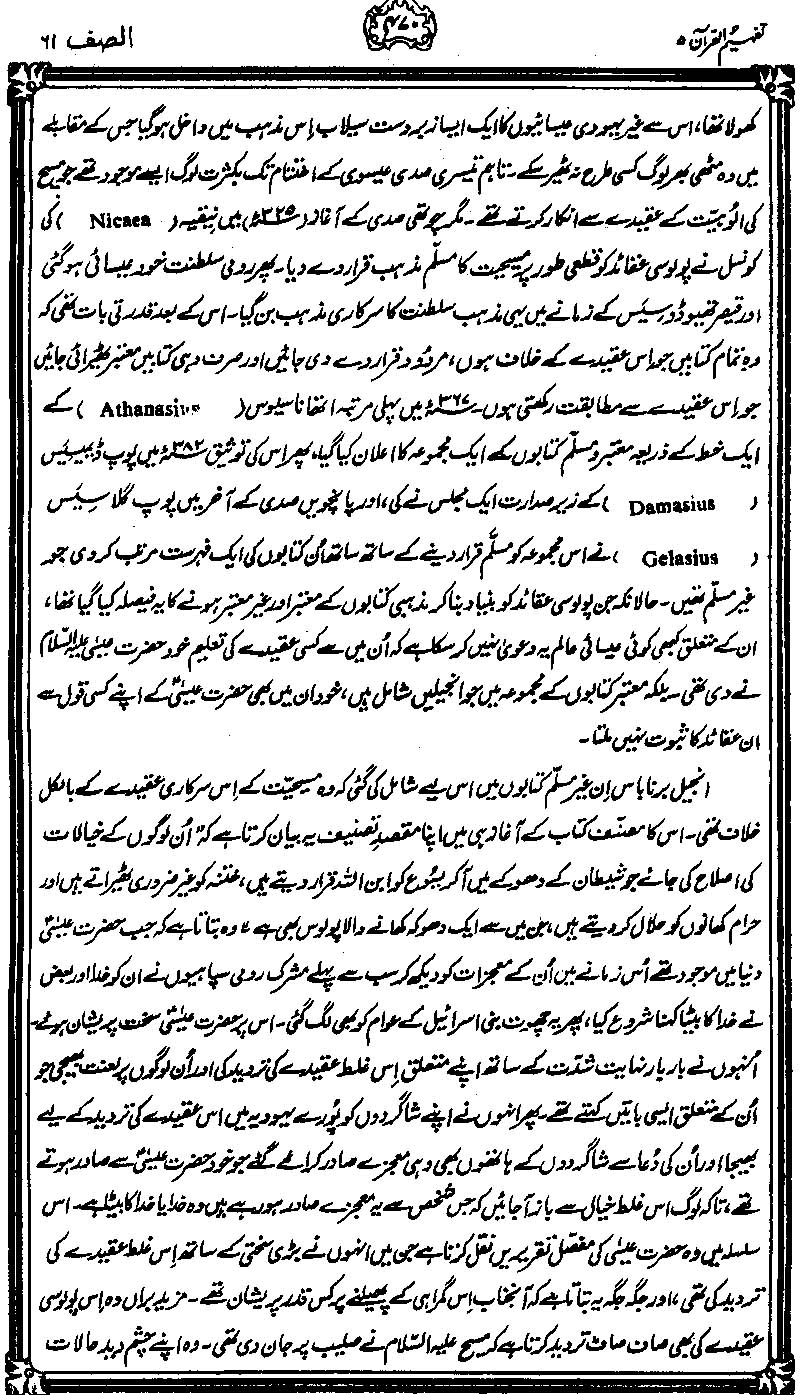 تفہیم القرآن ۵
۴۷۰
الصف ۶۱
کھولا تھا، اس سے غیر یہودی عیسائیوں کا ایک ایسا زبردست سیلاب اِس مذہب میں داخل ہو گیا جس کے مقابلے
میں وہ مٹھی بھر لوگ کسی طرح نہ ٹھیر سکے۔ تاہم تیسری صدی عیسوی کے اختتام تک بکثرت لوگ ایسے موجود تھے جو مسیح
کی الوہیّت کے عقیدے سے انکار کرتے تھے۔ مگر چوتھی صدی کے آغاز (۳۲۵ء) میں نیقیہ (Nicaea) کی
کونسل نے پولوسی عقائد کو قطعی طور پر مسیحیت کا مسلّم مذہب قرار دے دیا۔ پھر رومی سلطنت خود عیسائی ہو گئی
اور قیصر تھیوڈوسیئس کے زمانے میں یہی مذہب سلطنت کا سرکاری مذہب بن گیا۔ اس کے بعد قدرتی بات تھی کہ
وہ تمام کتابیں جو اِس عقیدے کے خلاف ہوں، مردُود قرار دے دی جائیں اور صرف وہی کتابیں معتبر ٹھیرائی جائیں
جو اِس عقیدے سے مطابقت رکھتی ہوں۔ ۳۶۷ء میں پہلی مرتبہ اتھاناسیوس (Athanasius) کے
ایک خط کے ذریعہ معتبر و مسلّم کتابوں کے ایک مجموعہ کا اعلان کیا گیا، پھر اِس کی توثیق ۳۸۲ء میں پوپ ڈیمیسیئس
(Damasius) کے زیر صدارت ایک مجلس نے کی، اور پانچویں صدی کے آخر میں پوپ گلاسیئس
(Gelasius) نے اس مجموعہ کو مسلّم قرار دینے کے ساتھ ساتھ اُن کتابوں کی ایک فہرست مرتب کر دی جو
غیر مسلّم تھیں۔ حالانکہ جن پولوسی عقائد کو بنیاد بنا کر مذہبی کتابوں کے معتبر اور غیر معتبر ہونے کا یہ فیصلہ کیا گیا تھا،
ان کے متعلق کبھی کوئی عیسائی عالم یہ دعویٰ نہیں کر سکا ہے کہ اُن میں سے کسی عقیدے کی تعلیم خود حضرت عیسٰی علیہ السّلام
نے دی تھی۔ بلکہ معتبر کتابوں کے مجموعہ میں جو انجیلیں شامل ہیں، خود ان میں بھی حضرت عیسیٰؑ کے اپنے کسی قول سے
ان عقائد کا ثبوت نہیں ملتا۔
انجیل برناباس اِن غیر مسلّم کتابوں میں اس لیے شامل کی گئی کہ وہ مسیحیّت کے اِس سرکاری عقیدے کے بالکل
خلاف تھی۔ اس کا مصنف کتاب کے آغاز ہی میں اپنا مقصدِ تصنیف یہ بیان کرتا ہے کہ "اُن لوگوں کے خیالات
کی اصلاح کی جائے جو شیطان کے دھوکے میں آ کر یسُوع کو ابن اللہ قرار دیتے ہیں، ختنہ کو غیر ضروری ٹھیراتے ہیں اور
حرام کھانوں کو حلال کر دیتے ہیں، جن میں سے ایک دھوکہ کھانے والا پولوس بھی ہے"۔ وہ بتاتا ہے کہ جب حضرت عیسیٰؑ
دنیا میں موجود تھے اُس زمانے میں اُن کے معجزات کو دیکھ کر سب سے پہلے مشرک رومی سپاہیوں نے ان کو خدا اور بعض
نے خدا کا بیٹا کہنا شروع کیا، پھر یہ چھوت بنی اسرائیل کے عوام کو بھی لگ گئی۔ اس پر حضرت عیسیٰؑ سخت پریشان ہوئے۔
اُنہوں نے بار بار نہایت شدّت کے ساتھ اپنے متعلق اِس غلط عقیدے کی تردید کی اور اُن لوگوں پر لعنت بھیجی جو
اُن کے متعلق ایسی باتیں کہتے تھے۔ پھر انہوں نے اپنے شاگردوں کو پُورے یہودیہ میں اس عقیدے کی تردید کے لیے
بھیجا اور اُن کی دُعا سے شاگردوں کے ہاتھوں بھی وہی معجزے صادر کرائے گئے جو خود حضرت عیسیٰؑ سے صادر ہوتے
تھے، تاکہ لوگ اس غلط خیال سے باز آ جائیں کہ جس شخص سے یہ معجزے صادر ہو رہے ہیں وہ خدا یا خدا کا بیٹا ہے۔ اس
سلسلہ میں وہ حضرت عیسیٰ کی مفصّل تقریریں نقل کرتا ہے جن میں انہوں نے بڑی سختی کے ساتھ اِس غلط عقیدے کی
تردید کی تھی، اور جگہ جگہ یہ بتاتا ہے کہ آنجناب اِس گمراہی کے پھیلنے پر کس قدر پریشان تھے۔ مزید براں وہ اِس پولوسی
عقیدے کی بھی صاف صاف تردید کرتا ہے کہ مسیح علیہ السّلام نے صلیب پر جان دی تھی۔ وہ اپنے چشم دید حالات